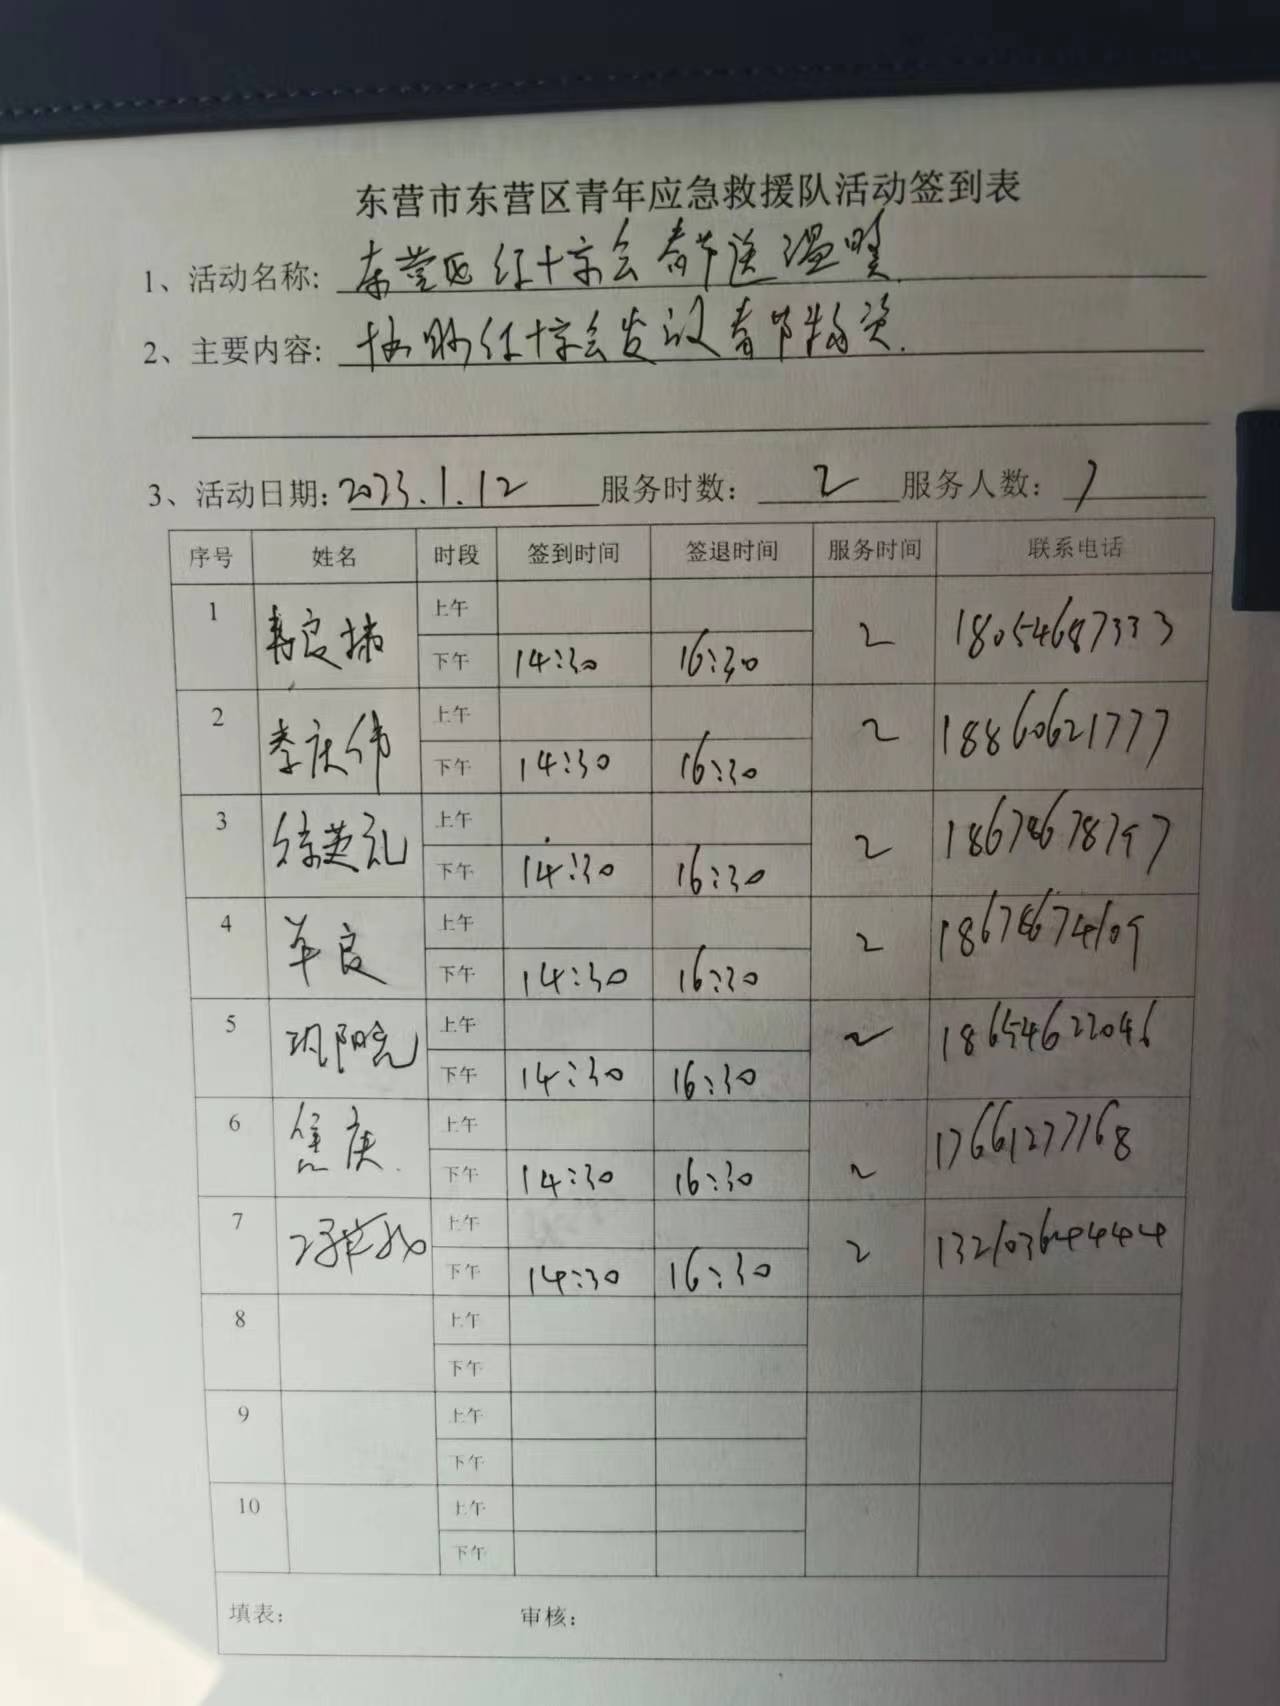 东营市东营区青年应急救援队活动签到表
1、活动名称: 东营区红十字会春节送温暖
2、主要内容: 协助红十字会发放春节物资.
3、活动日期: 2023.1.12 服务时数: 2 服务人数: 7
序号 姓名 时段 签到时间 签退时间 服务时间 联系电话
1 良 上午
下午 14:30 16:30 2 18054687333
2 李庆伟 上午
下午 14:30 16:30 2 18860621777
3 徐英礼 上午
下午 14:30 16:30 2 18678678797
4 单良 上午
下午 14:30 16:30 2 18678674109
5 巩阳光 上午
下午 14:30 16:30 2 18654622046
6 焦庆 上午
下午 14:30 16:30 2 17661277168
7 上午
下午 14:30 16:30 2 13210364444
8 上午
下午
9 上午
下午
10 上午
下午
填表: 审核: